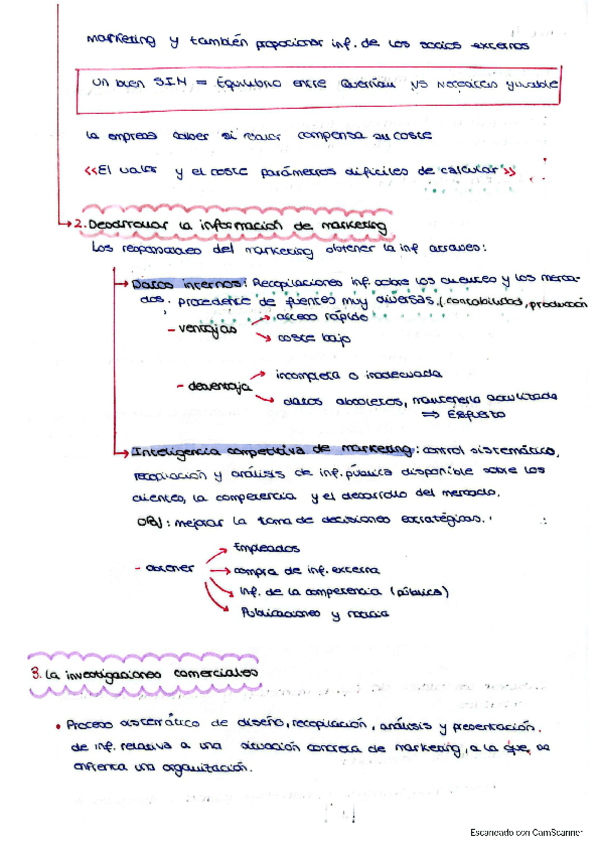 marketing y también proporcionar inf. de los socios externos
un buen S.I.M = Equilibrio entre Querrían VS Necesitan y viable
la empresa saber si valor compensa su coste
<<El valor y el coste parámetros difíciles de calcular>>
2. Desarrollar la información de marketing
Los responsables del marketing obtener la inf atraves:
Datos internos: Recopilaciones inf. sobre los clientes y los merca-
dos. procedente de fuentes muy diversas, (contabilidad, producción
- ventajas
acceso rápido
coste bajo
- desventaja
incompleta o inadecuada
datos obsoletos, mantenerla actualizada
⇒ Esfuerzo
Inteligencia competitiva de marketing: control sistemático,
recopilación y análisis de inf. pública disponible sobre los
clientes, la competencia y el desarrollo del mercado.
OBJ: mejorar la toma de decisiones estratégicas.
- obtener
Empleados
compra de inf. externa
Inf. de la competencia (pública)
Publicaciones y noticia
3. La investigaciones comerciales
• Proceso sistemático de diseño, recopilación, análisis y presentación.
de inf. relativa a una situación concreta de marketing, a la que, se
enfrenta una organización.
Escaneado con CamScanner